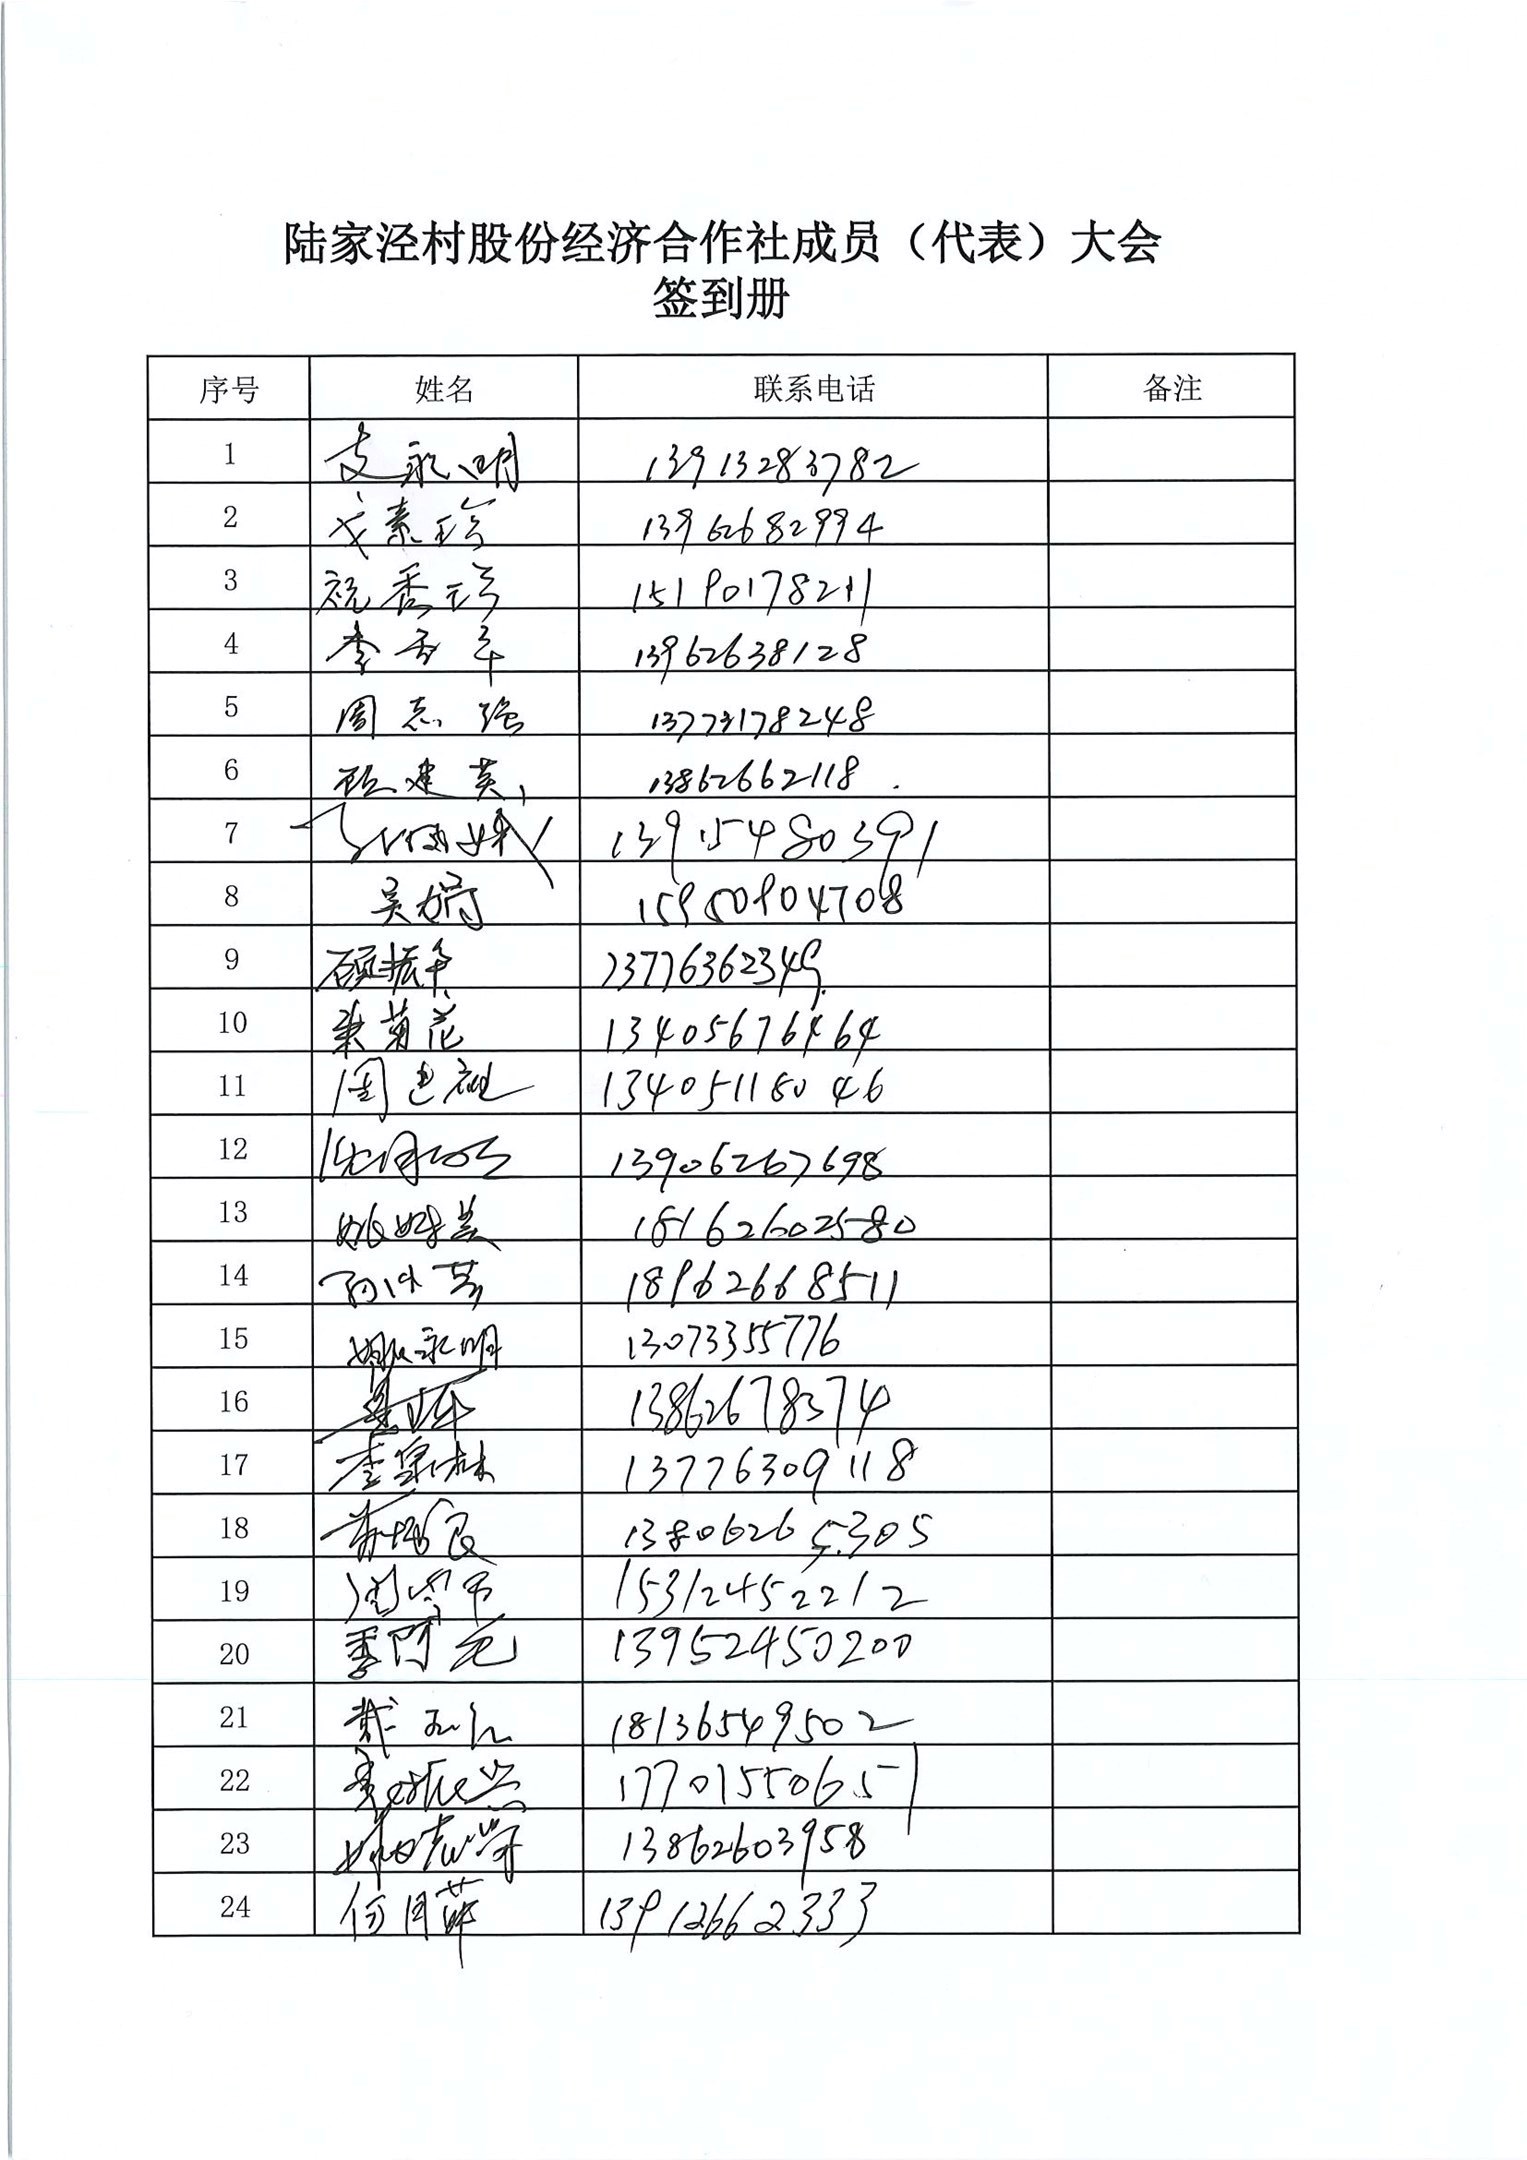 陆家泾村股份经济合作社成员（代表）大会
签到册
序号 姓名 联系电话 备注
1 支永明 13913283782
2 戈素珍 13962682994
3 祝秀珍 15190178211
4 李香年 13962638128
5 周志强 13773178248
6 顾建英 13862662118
7 13915480391
8 吴娟 15950904708
9 顾振华 13776362349
10 朱菊花 13405676464
11 周建 13405118046
12 沈月 13906267698
13 姚妹英 18162602580
14 18962668511
15 姚永明 13073355776
16 13862678374
17 李泉林 13776309118
18 13806265305
19 15312452212
20 季阿元 13952450200
21 戴 18136549502
22 17701550651
23 姚志荣 13862603958
24 何月萍 13912662333